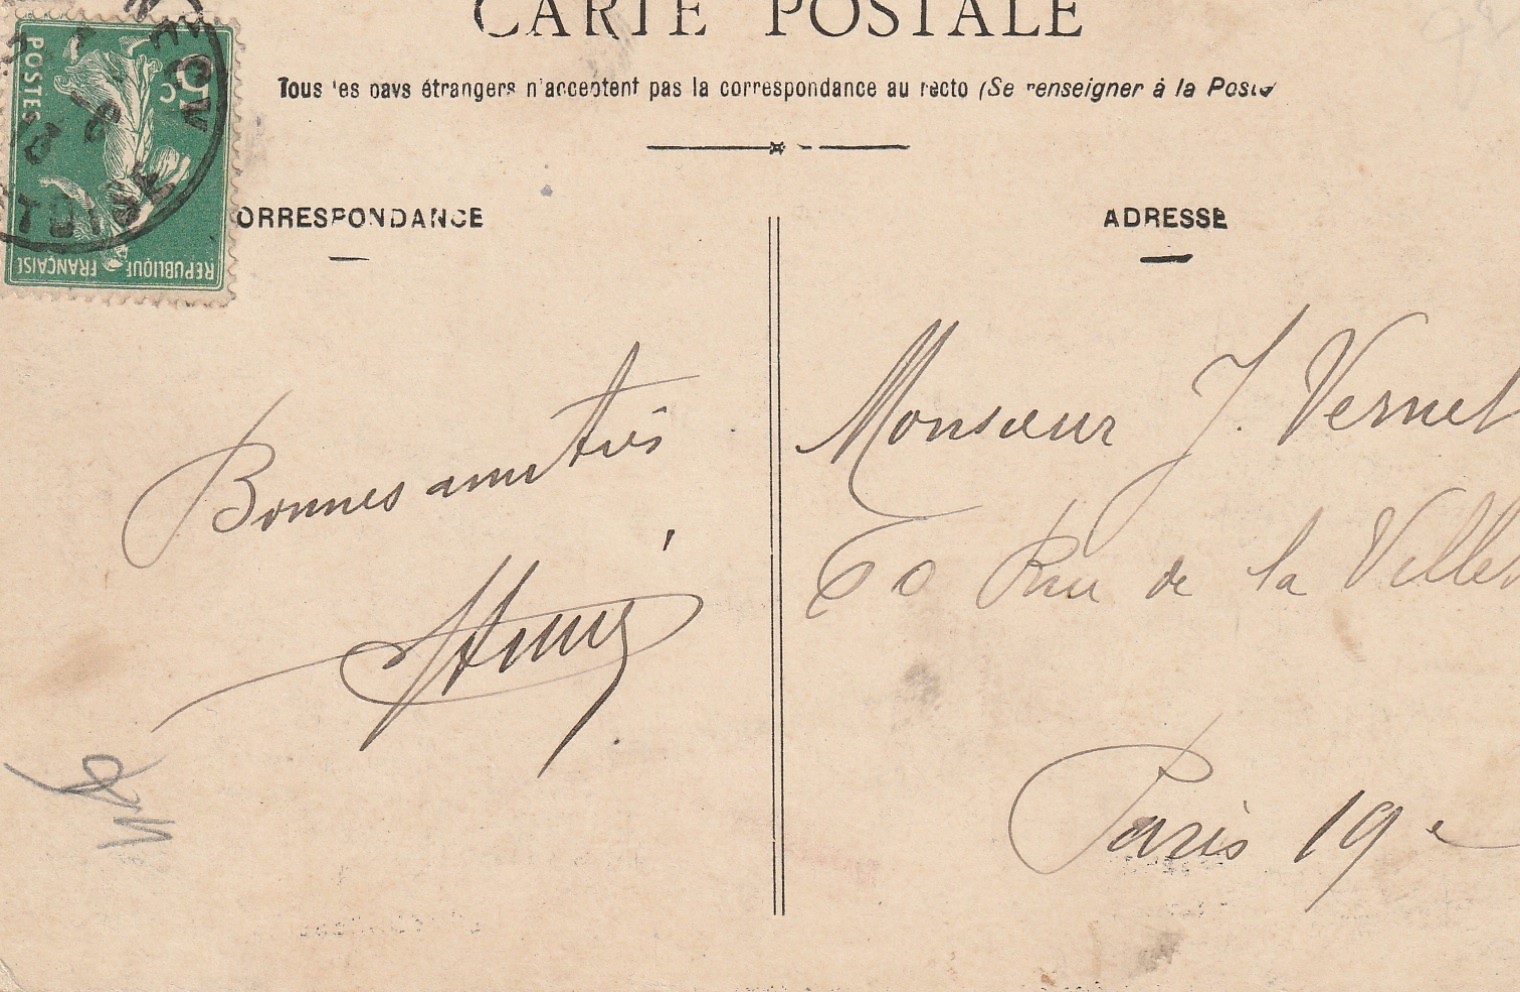 CARTE POSTALE
Tous les pays étrangers n'acceptent pas la correspondance au recto (Se renseigner à la Poste
POSTES
5c
REPUBLIQUE FRANÇAISE
ORRESPONDANCE
ADRESSE
Bonnes amitiés
Monsieur J. Vernet
60 Rue de la Villet
Paris 19e